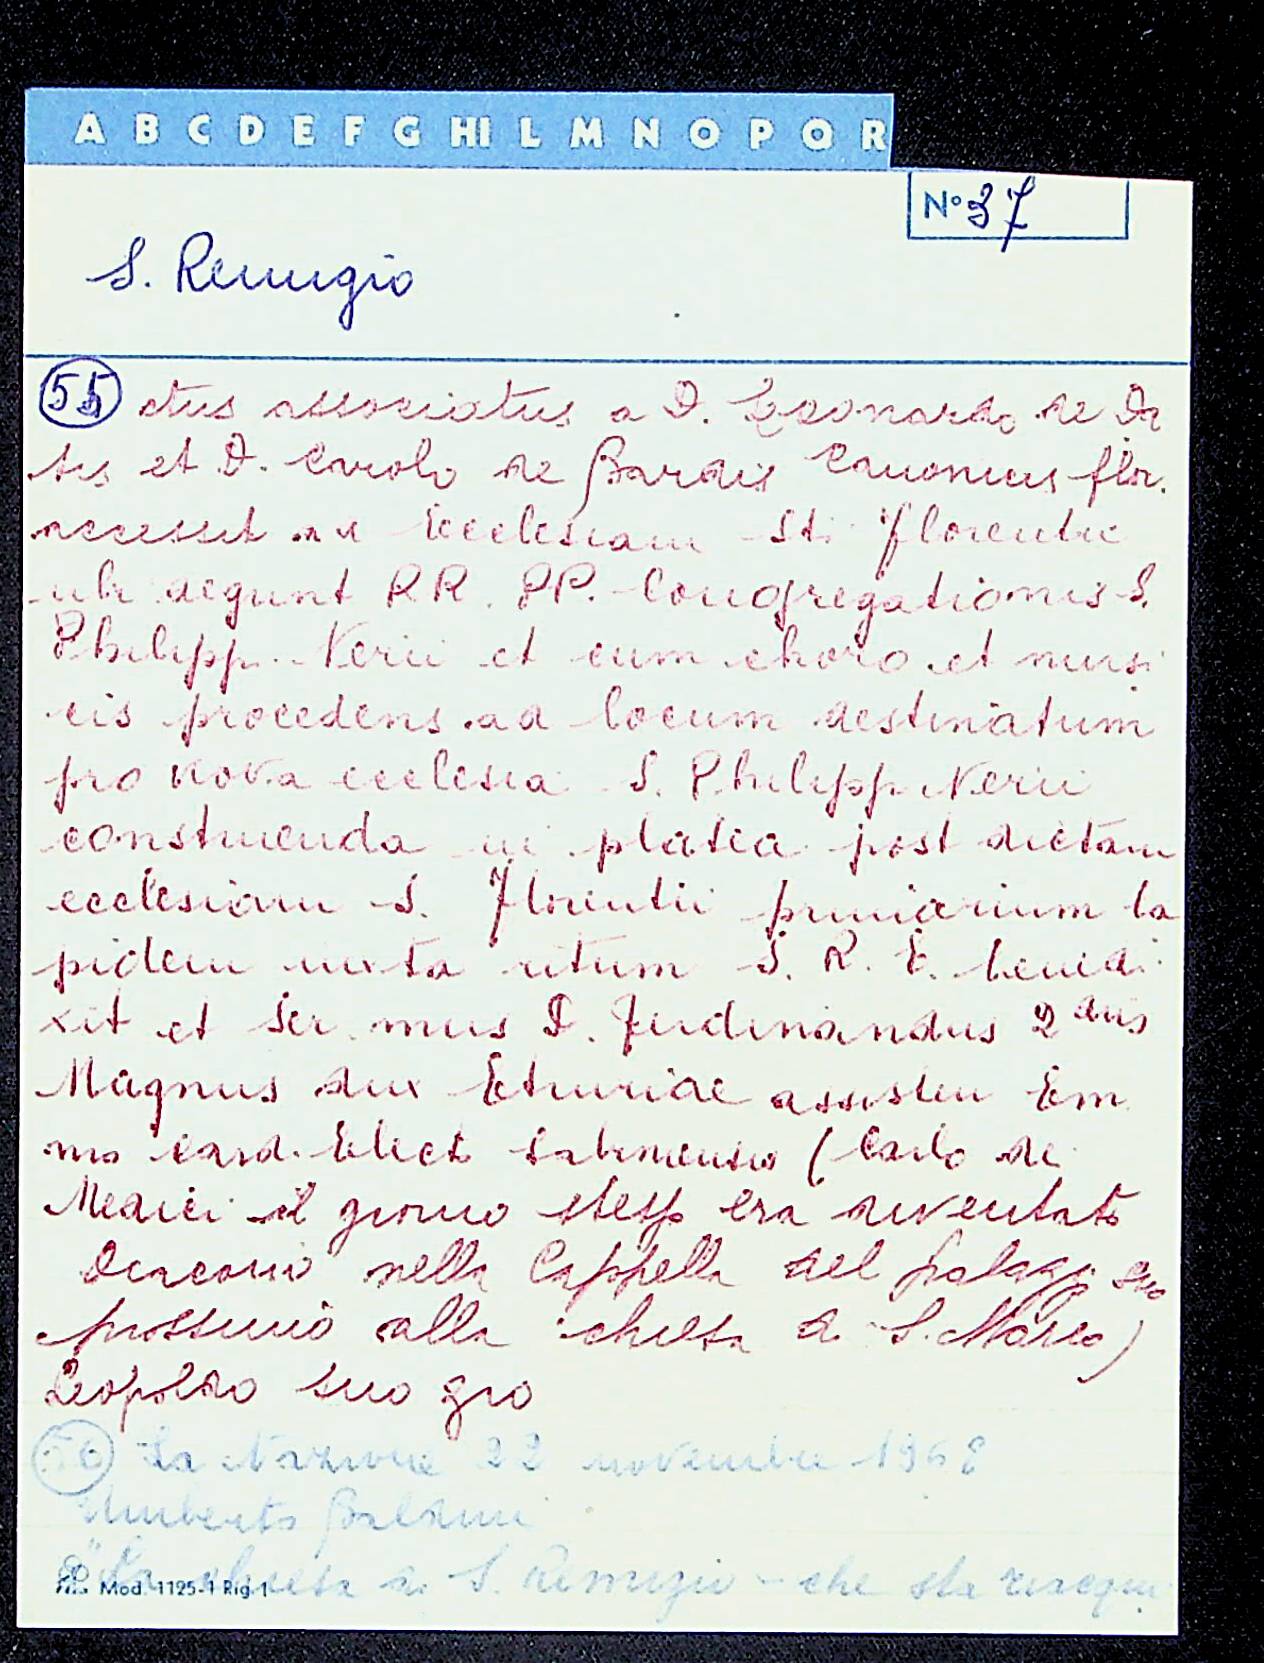 A B C D E F G HI L M N O P Q R
N° 37
S. Remigio
55 ctus associatus a D. Leonardo de Da
tis et D. Carolo de Bardis Canonicis flor.
accessit ad Ecclesiam Sti Florentii
ubi degunt RR. PP. Congregationis S.
Philipp. Nerii et cum choro et musi
cis procedens ad locum destinatum
pro nova ecclesia S. Philipp. Nerii
construenda in platea post dictam
ecclesiam S. Florentii primarium la
pidem iuxta ritum S. R. E. benedi
xit et Ser. mus D. Ferdinandus 2dus
Magnus dux Etruriae assisten Em
mo Card. Elect Sabinensis (Carlo de
Medici il giorno stesso era diventato
Diacono nella Cappella del palazzo suo
prossimo alla chiesa di S. Marco)
Leopoldo suo
56 La Nazione 22 novembre 1968
Umberto Baldini
"La chiesa di S. Remigio - che sta riacqui
Mod. 1125-1 Rig. 1